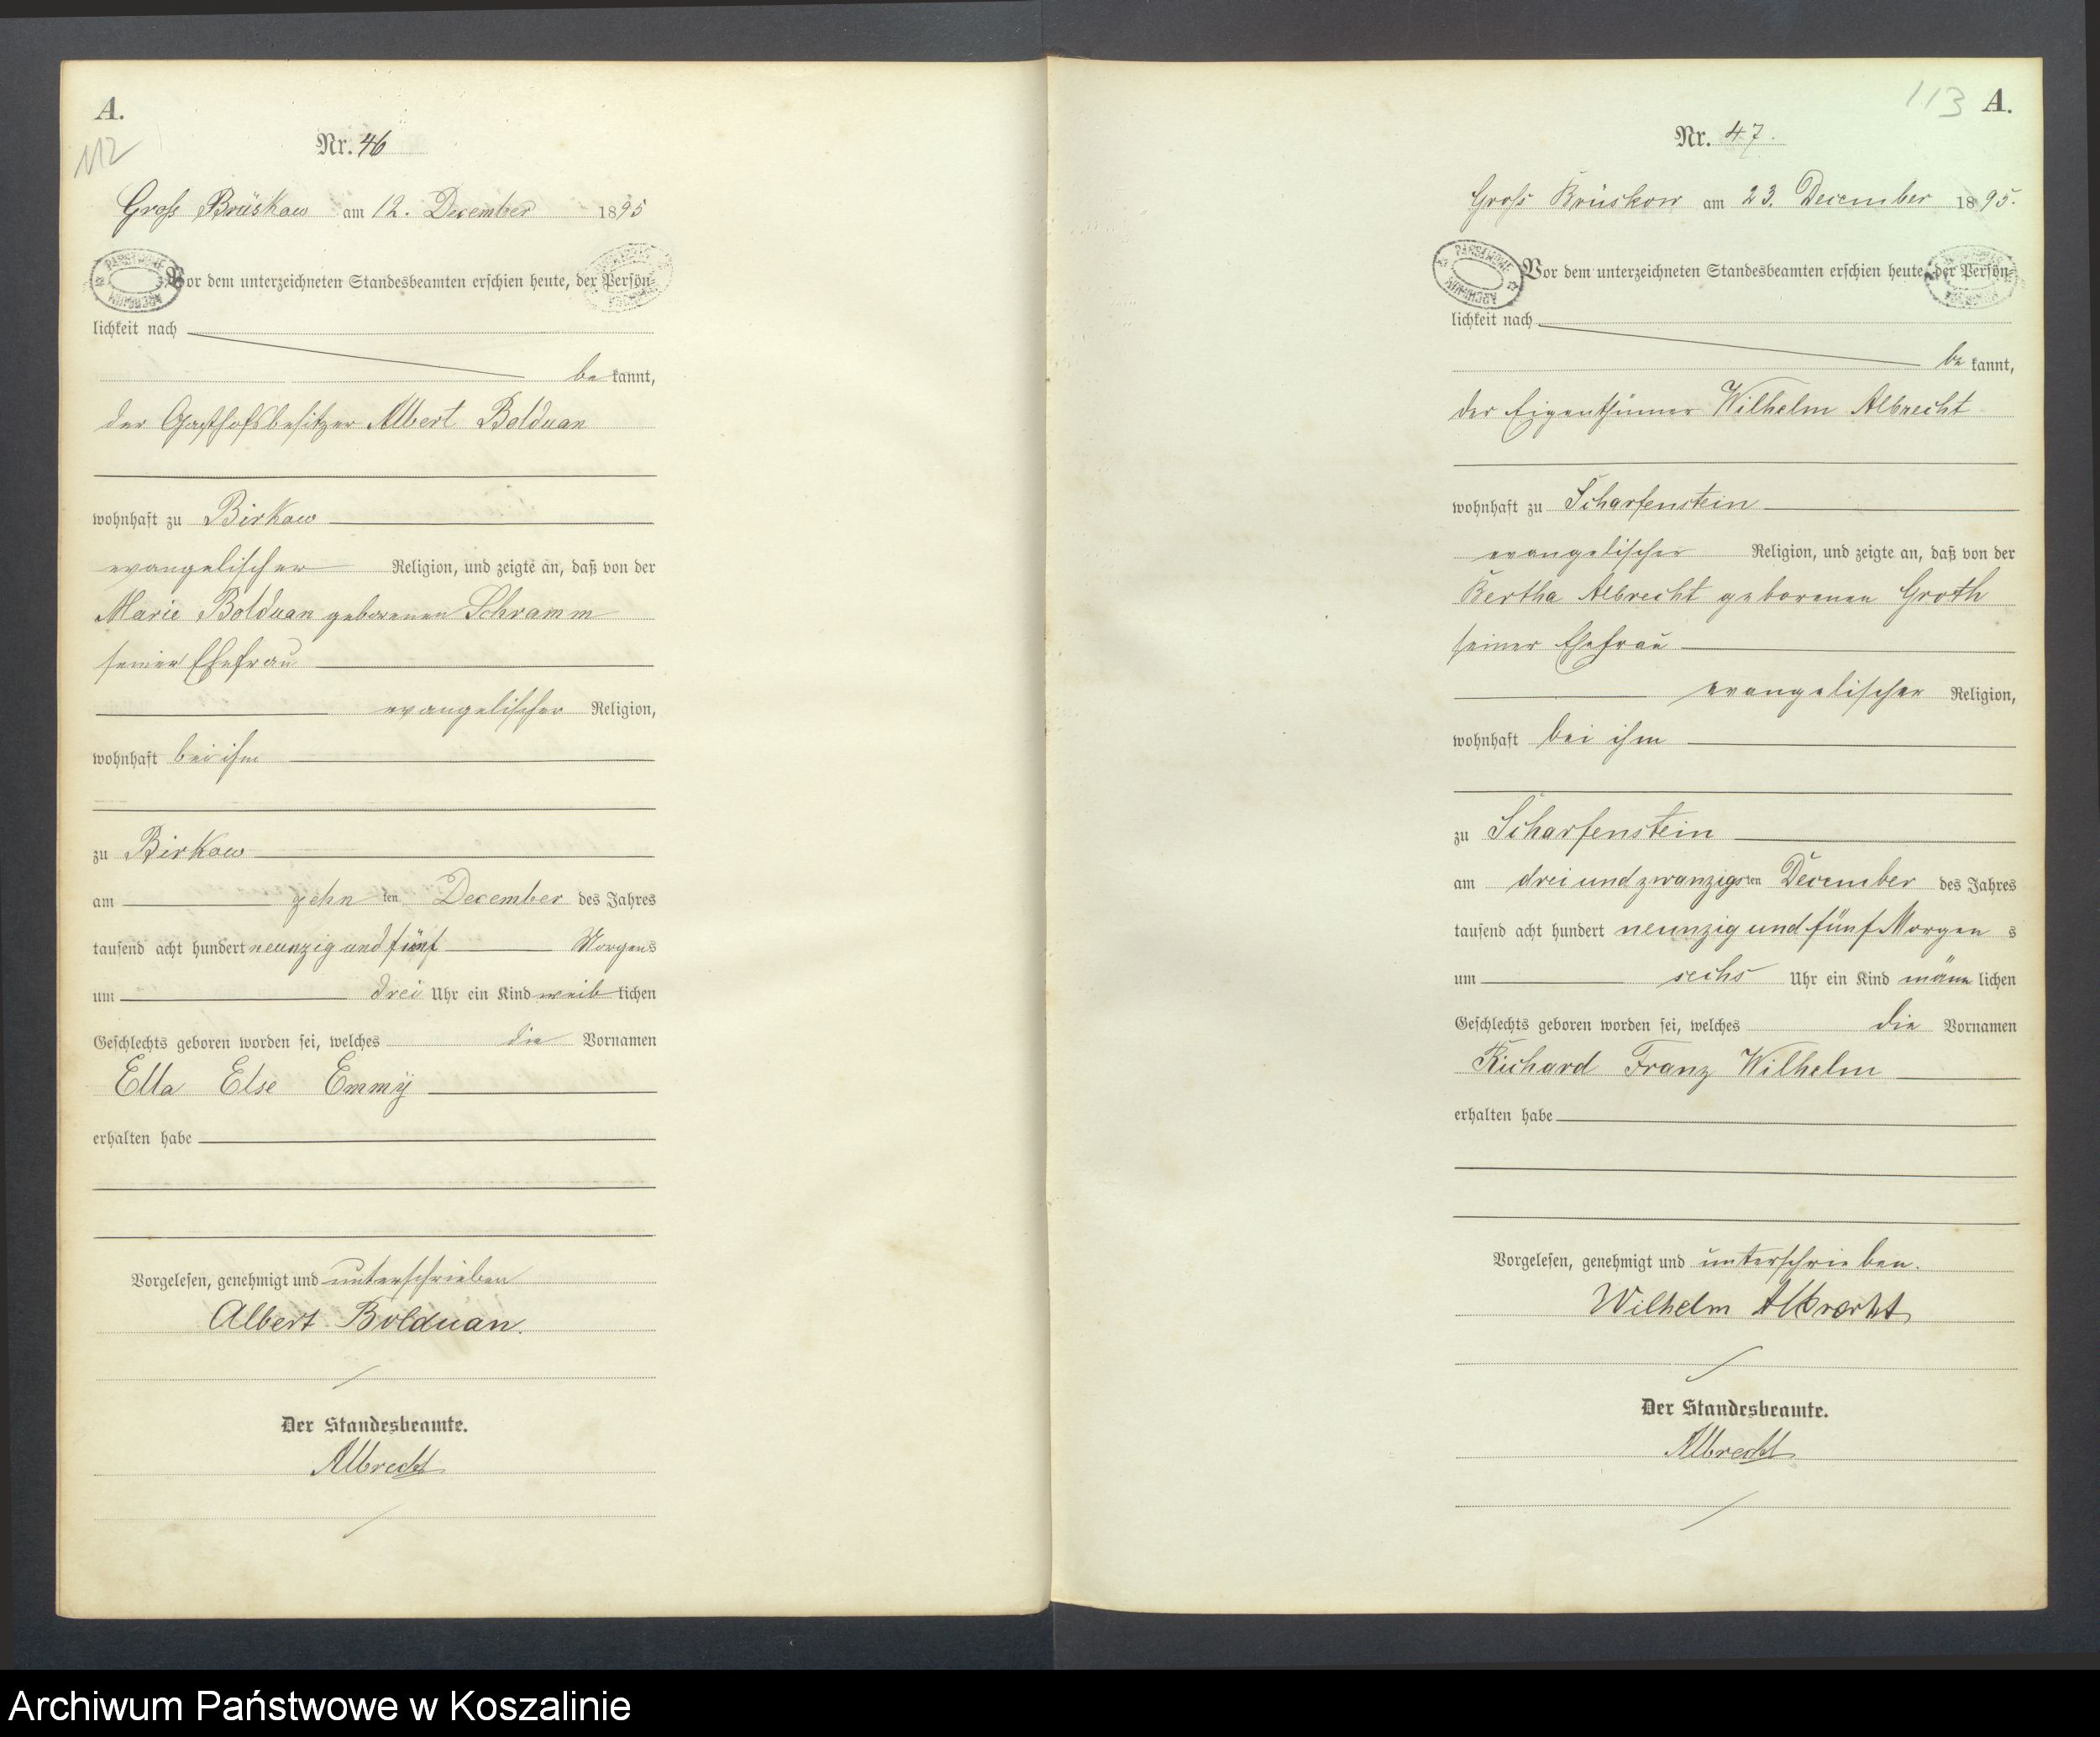 A.
112
Nr. 46
Gross Brüskow am 12. December 1895
Vor dem unterzeichneten Standesbeamten erschien heute, der Persön-
lichkeit nach
be kannt,
der Gasthofsbesitzer Albert Bolduan
wohnhaft zu Birkow
evangelischer Religion, und zeigte an, daß von der
Marie Bolduan geborenen Schramm
seiner Ehefrau
evangelischer Religion,
wohnhaft bei ihm
zu Birkow
am zehn ten December des Jahres
tausend acht hundert neunzig und fünf Morgens
um drei Uhr ein Kind weib lichen
Geschlechts geboren worden sei, welches die Vornamen
Ella Else Emmÿ
erhalten habe
Vorgelesen, genehmigt und unterschrieben
Albert Bolduan.
Der Standesbeamte.
Albrecht
113 A.
Nr. 47.
Gross Brüskow am 23. December 1895.
Vor dem unterzeichneten Standesbeamten erschien heute, der Persön-
lichkeit nach
be kannt,
der Eigenthümer Wilhelm Albrecht
wohnhaft zu Scharfenstein
evangelischer Religion, und zeigte an, daß von der
Bertha Albrecht geborenen Groth
seiner Ehefrau
evangelischer Religion,
wohnhaft bei ihm
zu Scharfenstein
am drei und zwanzigsten December des Jahres
tausend acht hundert neunzig und fünf Morgen s
um sechs Uhr ein Kind männ lichen
Geschlechts geboren worden sei, welches die Vornamen
Richard Franz Wilhelm
erhalten habe
Vorgelesen, genehmigt und unterschrieben.
Wilhelm Albrecht
Der Standesbeamte.
Albrecht
Archiwum Państwowe w Koszalinie